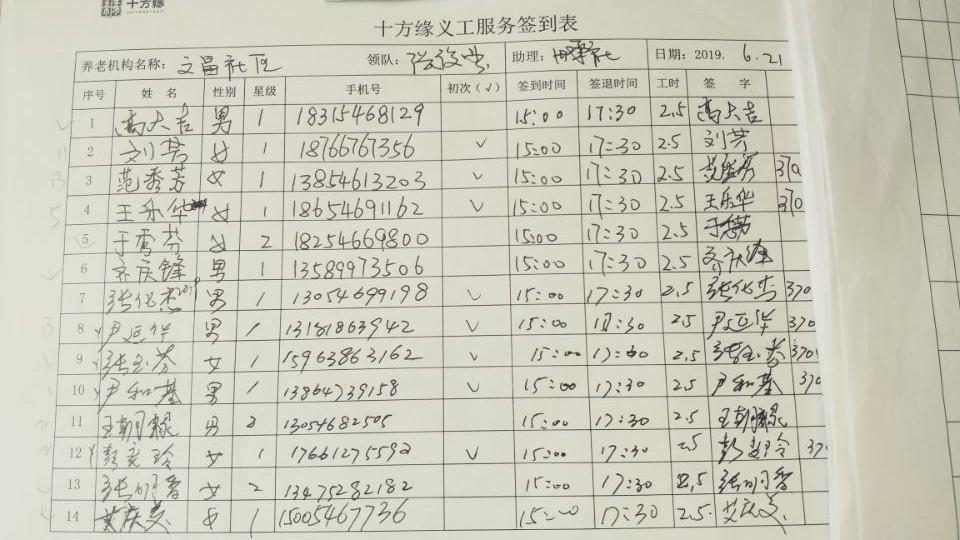 十方缘
十方缘义工服务签到表
养老机构名称： 文昌社区 领队： 助理： 日期：2019. 6.21
序号 姓名 性别 星级 手机号 初次（√） 签到时间 签退时间 工时 签字
1 高大吉 男 1 18315468129 15:00 17:30 2.5 高大吉
2 刘芳 女 1 18766767356 √ 15:00 17:30 2.5 刘芳
3 范秀芳 女 1 13854613203 √ 15:00 17:30 2.5 范秀芳 370
4 王乐华 女 1 18654691162 √ 15:00 17:30 2.5 王乐华 370
5 于雪芬 女 2 18254669800 15:00 17:30 2.5
6 齐庆锋 男 1 13589973506 15:00 17:30 2.5 齐庆锋
7 张化杰 男 1 13054699198 √ 15:00 17:30 2.5 张化杰 370
8 尹延华 男 1 13181863942 √ 15:00 17:30 2.5 尹延华 370
9 张玉芬 女 1 15963863162 √ 15:00 17:30 2.5 张玉芬 370
10 尹和基 男 1 13864739158 √ 15:00 17:30 2.5 尹和基 370
11 王朝禄 男 13054682505 15:00 17:30 2.5 王朝禄
12 女 1 √ 15:00 17:30 2.5 37
13 张明香 女 2 13475282182 15:00 17:30 2.5 张明香
14 女 1 15005467736 15:00 17:30 2.5